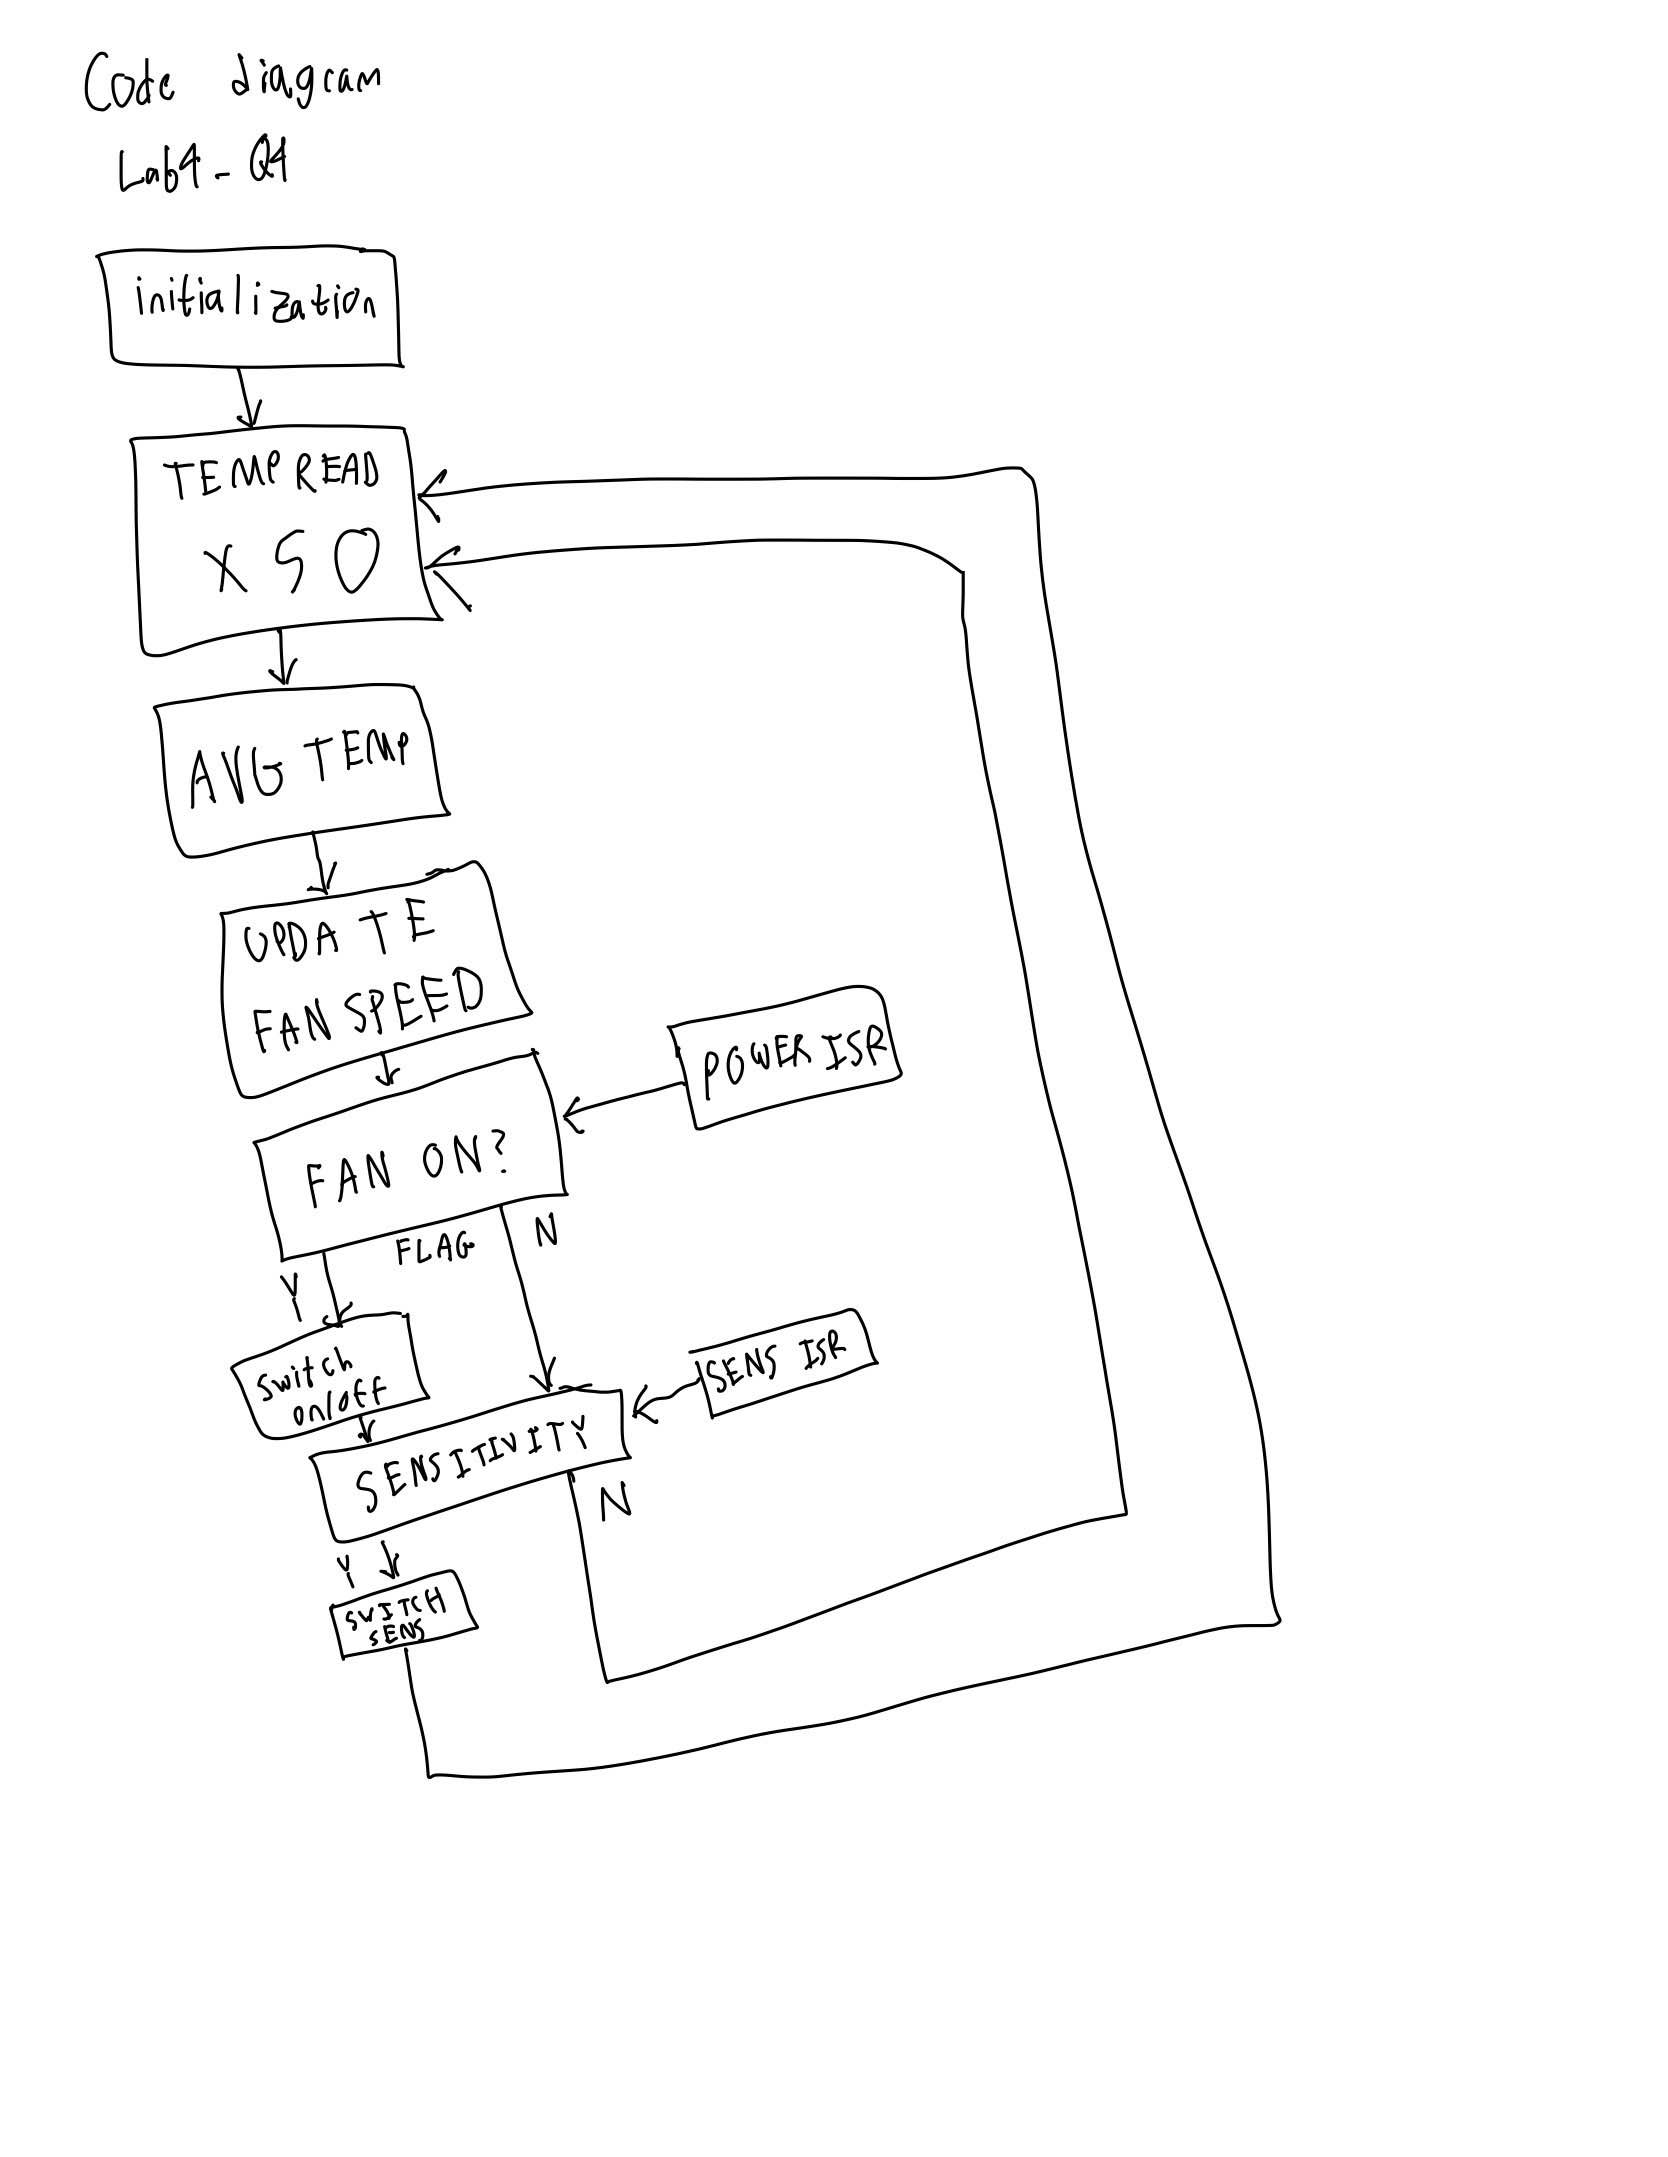 Code diagram
Lab4 - Q4
initialization
TEMP READ
X 50
AVG TEMP
UPDATE
FAN SPEED
POWER ISR
FAN ON?
FLAG
N
Y
switch
on/off
SENS ISR
SENSITIVITY
N
Y
SWITCH
SENS